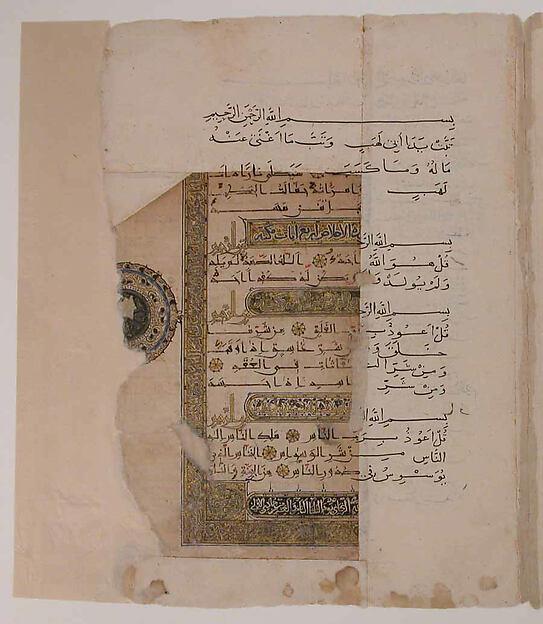 بسم الله الرحمن الرحيم
تبت يدا ابى لهب وتب ما اغنى عنه
ماله وما كسب سيصلى نارا ذات
لهب وامراته حمالة الحطب
الاخلاص اربع ايات مكية
بسم الله الر
قل هو الله احد الله الصمد لم يلد
ولم يولد ولم يكن له كفوا احد
بسم الله الرحـ
قل اعوذ برب الفلق من شر ما
خلق و من شر غاسق اذا وقب
ومن شر النفاثات فى العقد
ومن شر حاسد اذا حسد
بسم الله ا
قل اعوذ برب الناس ملك الناس اله
الناس من شر الوسواس الخناس الذى
يوسوس فى صدور الناس من الجنة والناس